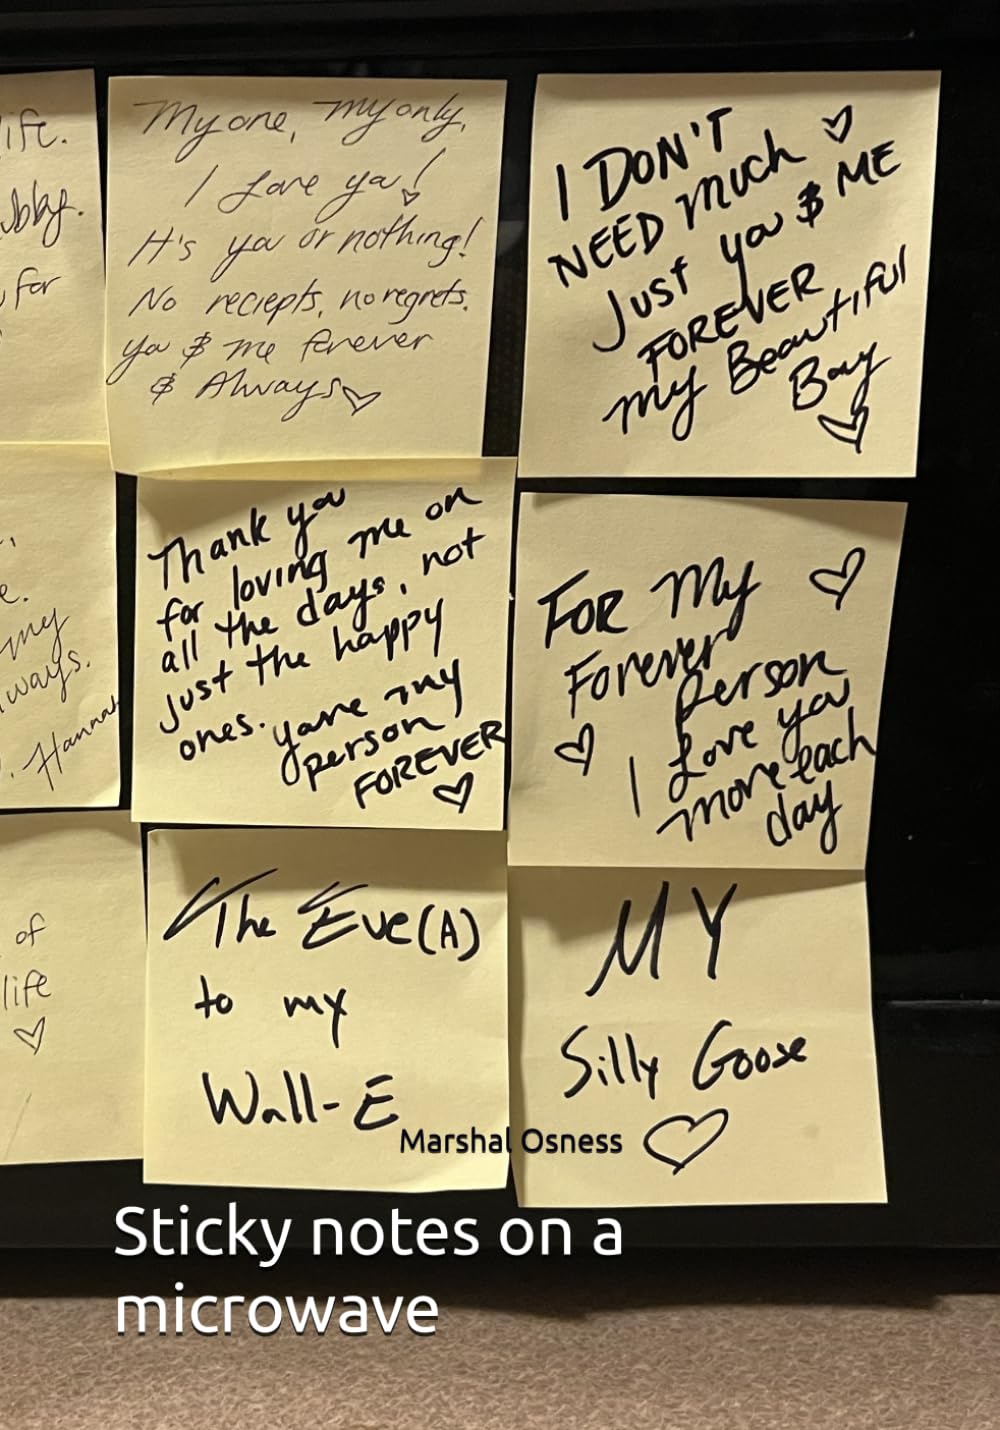 ife.
ubby.
for
My one, my only,
I Love you!
It's you or nothing!
No reciepts, no regrets.
you & me forever
& Always
I DON'T
NEED much
Just you & ME
FOREVER
my Beautiful
Boy
e.
my
lways.
Hannah
Thank you
for loving me on
all the days, not
just the happy
ones. you're my
person
FOREVER
FOR My
Forever
Person
I Love you
more each
day
of
life
The Eve(A)
to my
Wall-E
MY
Silly Goose
Marshal Osness
Sticky notes on a
microwave